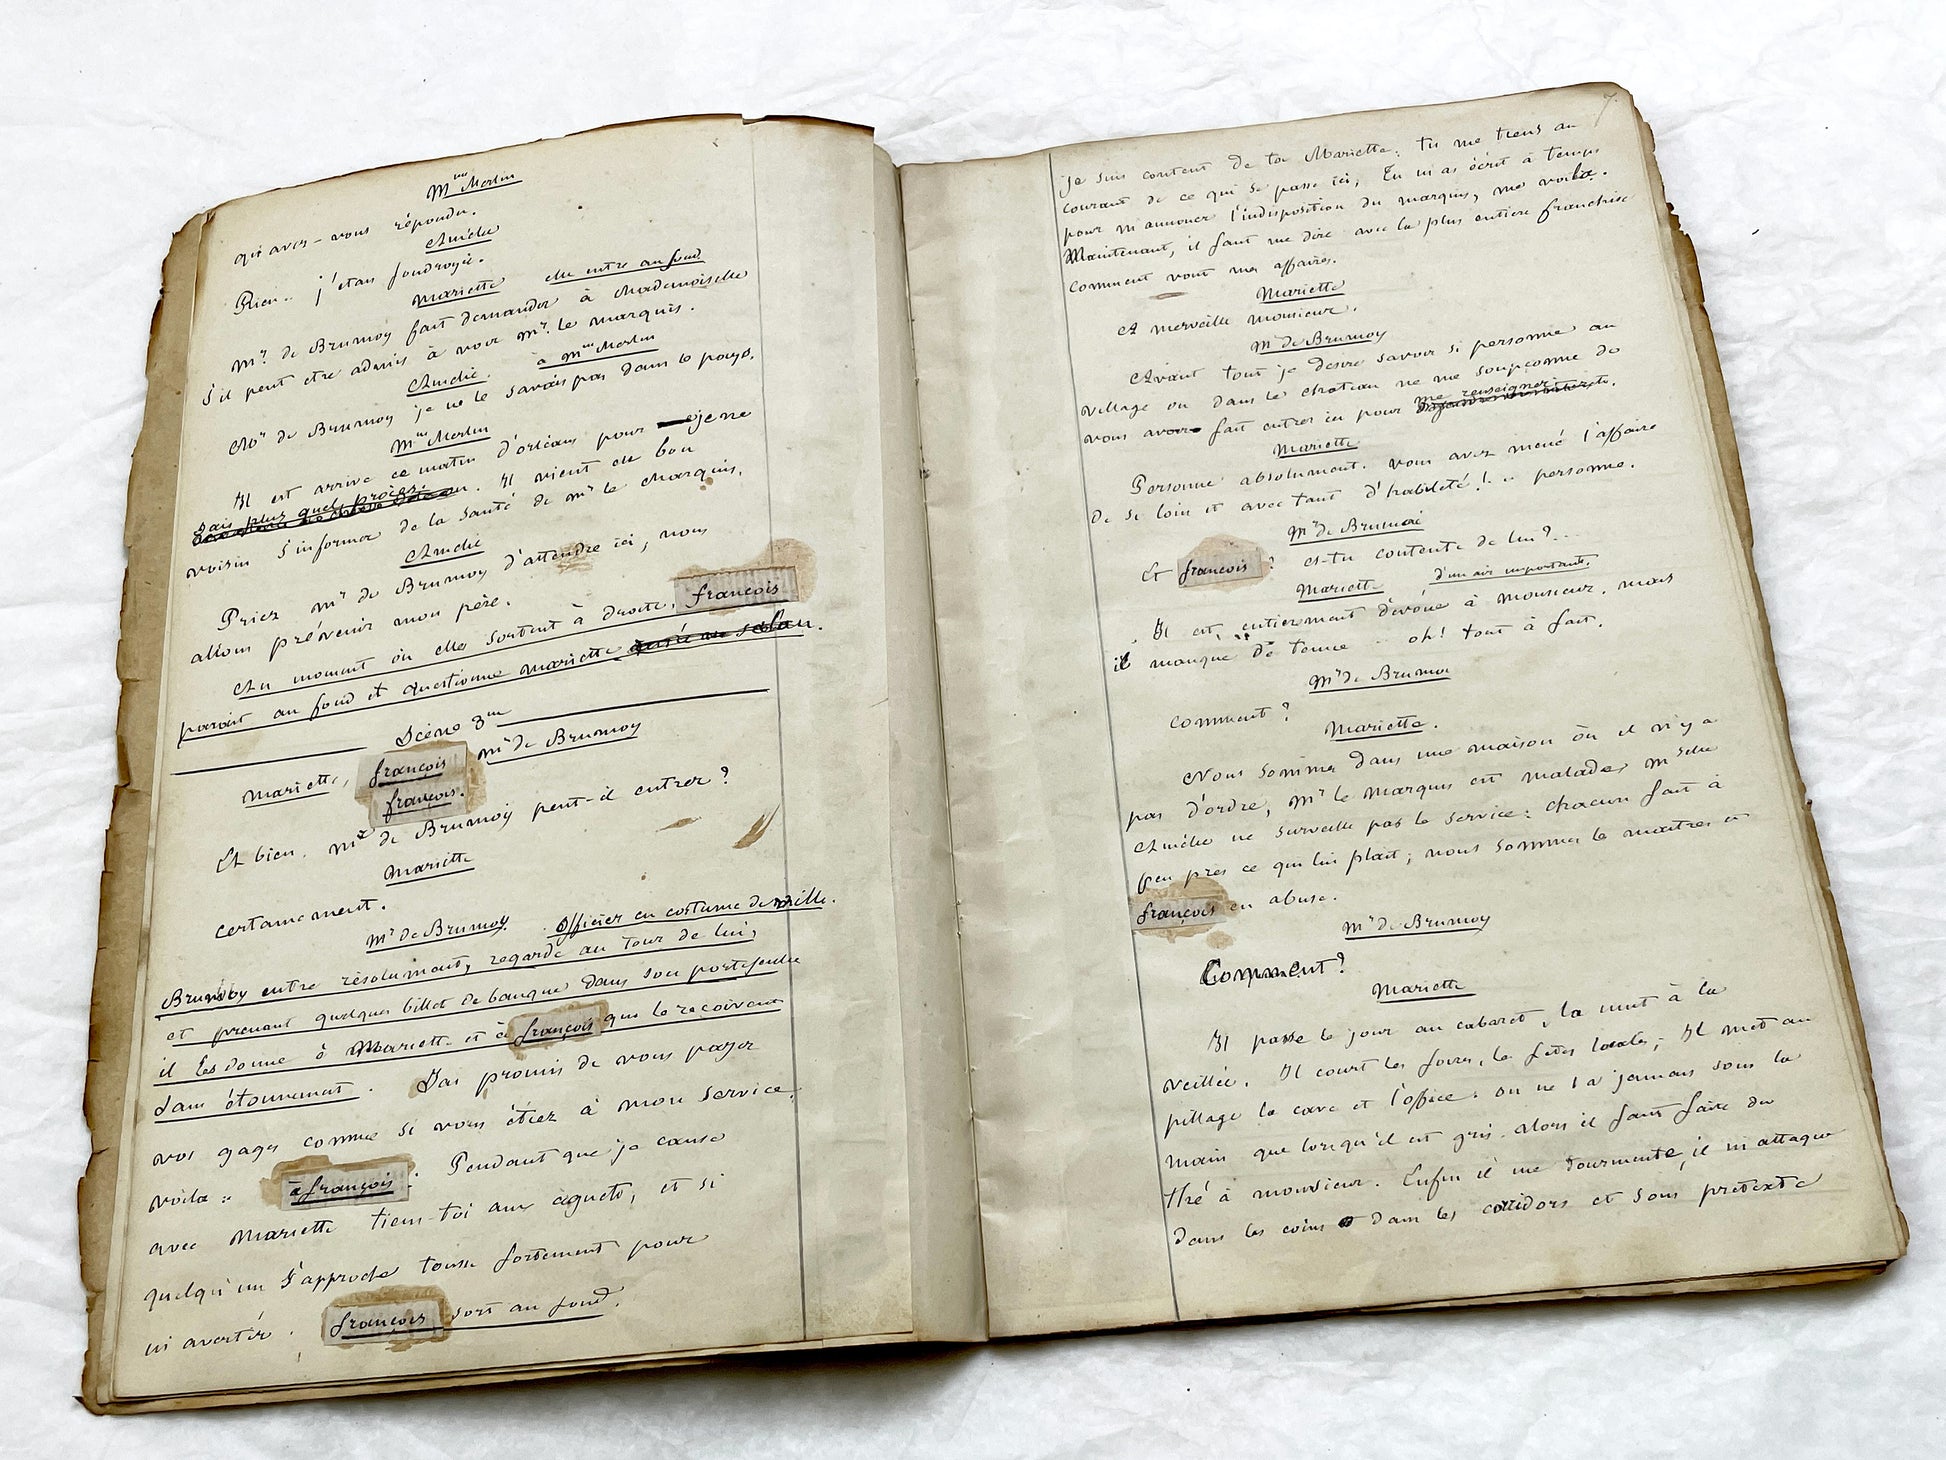 Mme Merlin
qu'avez-vous répondu.
Amélie
Rien.. j'étais foudroyée.
Mariette elle entre au fond
Mr. de Brumoy fait demander à Mademoiselle
s'il peut etre admis à voir Mr. le marquis.
Amélie. à Mme Merlin
Mr de Brumoy je ne le savais pas dans le pays.
Mme Merlin
Il est arrivé ce matin d'orléans pour je ne
sais plus quel procès. Il vient en bon
voisin s'informer de la santé de Mr le Marquis.
Amélie
Priez Mr de Brumoy d'attendre ici, nous
allons prévenir mon père.
Au moment où elles sortent à droite, françois
parait au fond et questionne Mariette
Scène 3me
Mariette, françois Mr de Brumoy
françois.
Et bien. Mr de Brumoy peut-il entrer?
Mariette
certainement.
Mr de Brumoy. Officier en costume de ville.
Brumoy entre résolument, regarde au tour de lui,
et prenant quelques billet de banque dans son portefeuille
il les donne à Mariette et à françois qui le reçoivent
sans étonnement. J'ai promis de vous payer
vos gages comme si vous étiez à mon service.
voila = à françois: Pendant que je cause
avec Mariette tiens-toi aux aguets, et si
quelqu'un s'approche tousse fortement pour
m'avertir. françois sort au fond.
7.
Je suis content de toi Mariette. tu me tiens au
courant de ce qui se passe ici, Tu m'as écrit à temps
pour m'annoncer l'indisposition du marquis, me voila.
Maintenant, il faut me dire avec la plus entière franchise
comment vont mes affaires.
Mariette
A merveille monsieur.
Mr de Brumoy
Avant tout je desire savoir si personne au
village ou dans le chateau ne me soupçonne de
vous avoir fait entrer ici pour me renseigner
Mariette
Personne absolument. vous avez mené l'affaire
de si loin et avec tant d'habileté!.. personne.
Mr de Brumoi
Et françois? es-tu contente de lui?...
Mariette d'un air important.
Il est entierement dévoué à monsieur, mais
il manque de tenue oh! tout à fait.
Mr de Brumoi
comment?
Mariette.
Nous sommes dans une maison où il n'y a
pas d'ordre, Mr le Marquis est malade, Mselle
Amélie ne surveille pas le service: chacun fait à
peu près ce qui lui plait; nous sommes les maitres et
françois en abuse.
Mr de Brumoy
Comment?
Mariette
Il passe le jour au cabaret, la nuit à la
veillée. Il court les foires, les fetes locales; Il met au
pillage la cave et l'office: on ne l'a jamais sous la
main que lorsqu'il est gris. alors il faut faire du
thé à monsieur. Enfin il me tourmente, il m'attaque
dans les coins dans les corridors et sous prétexte